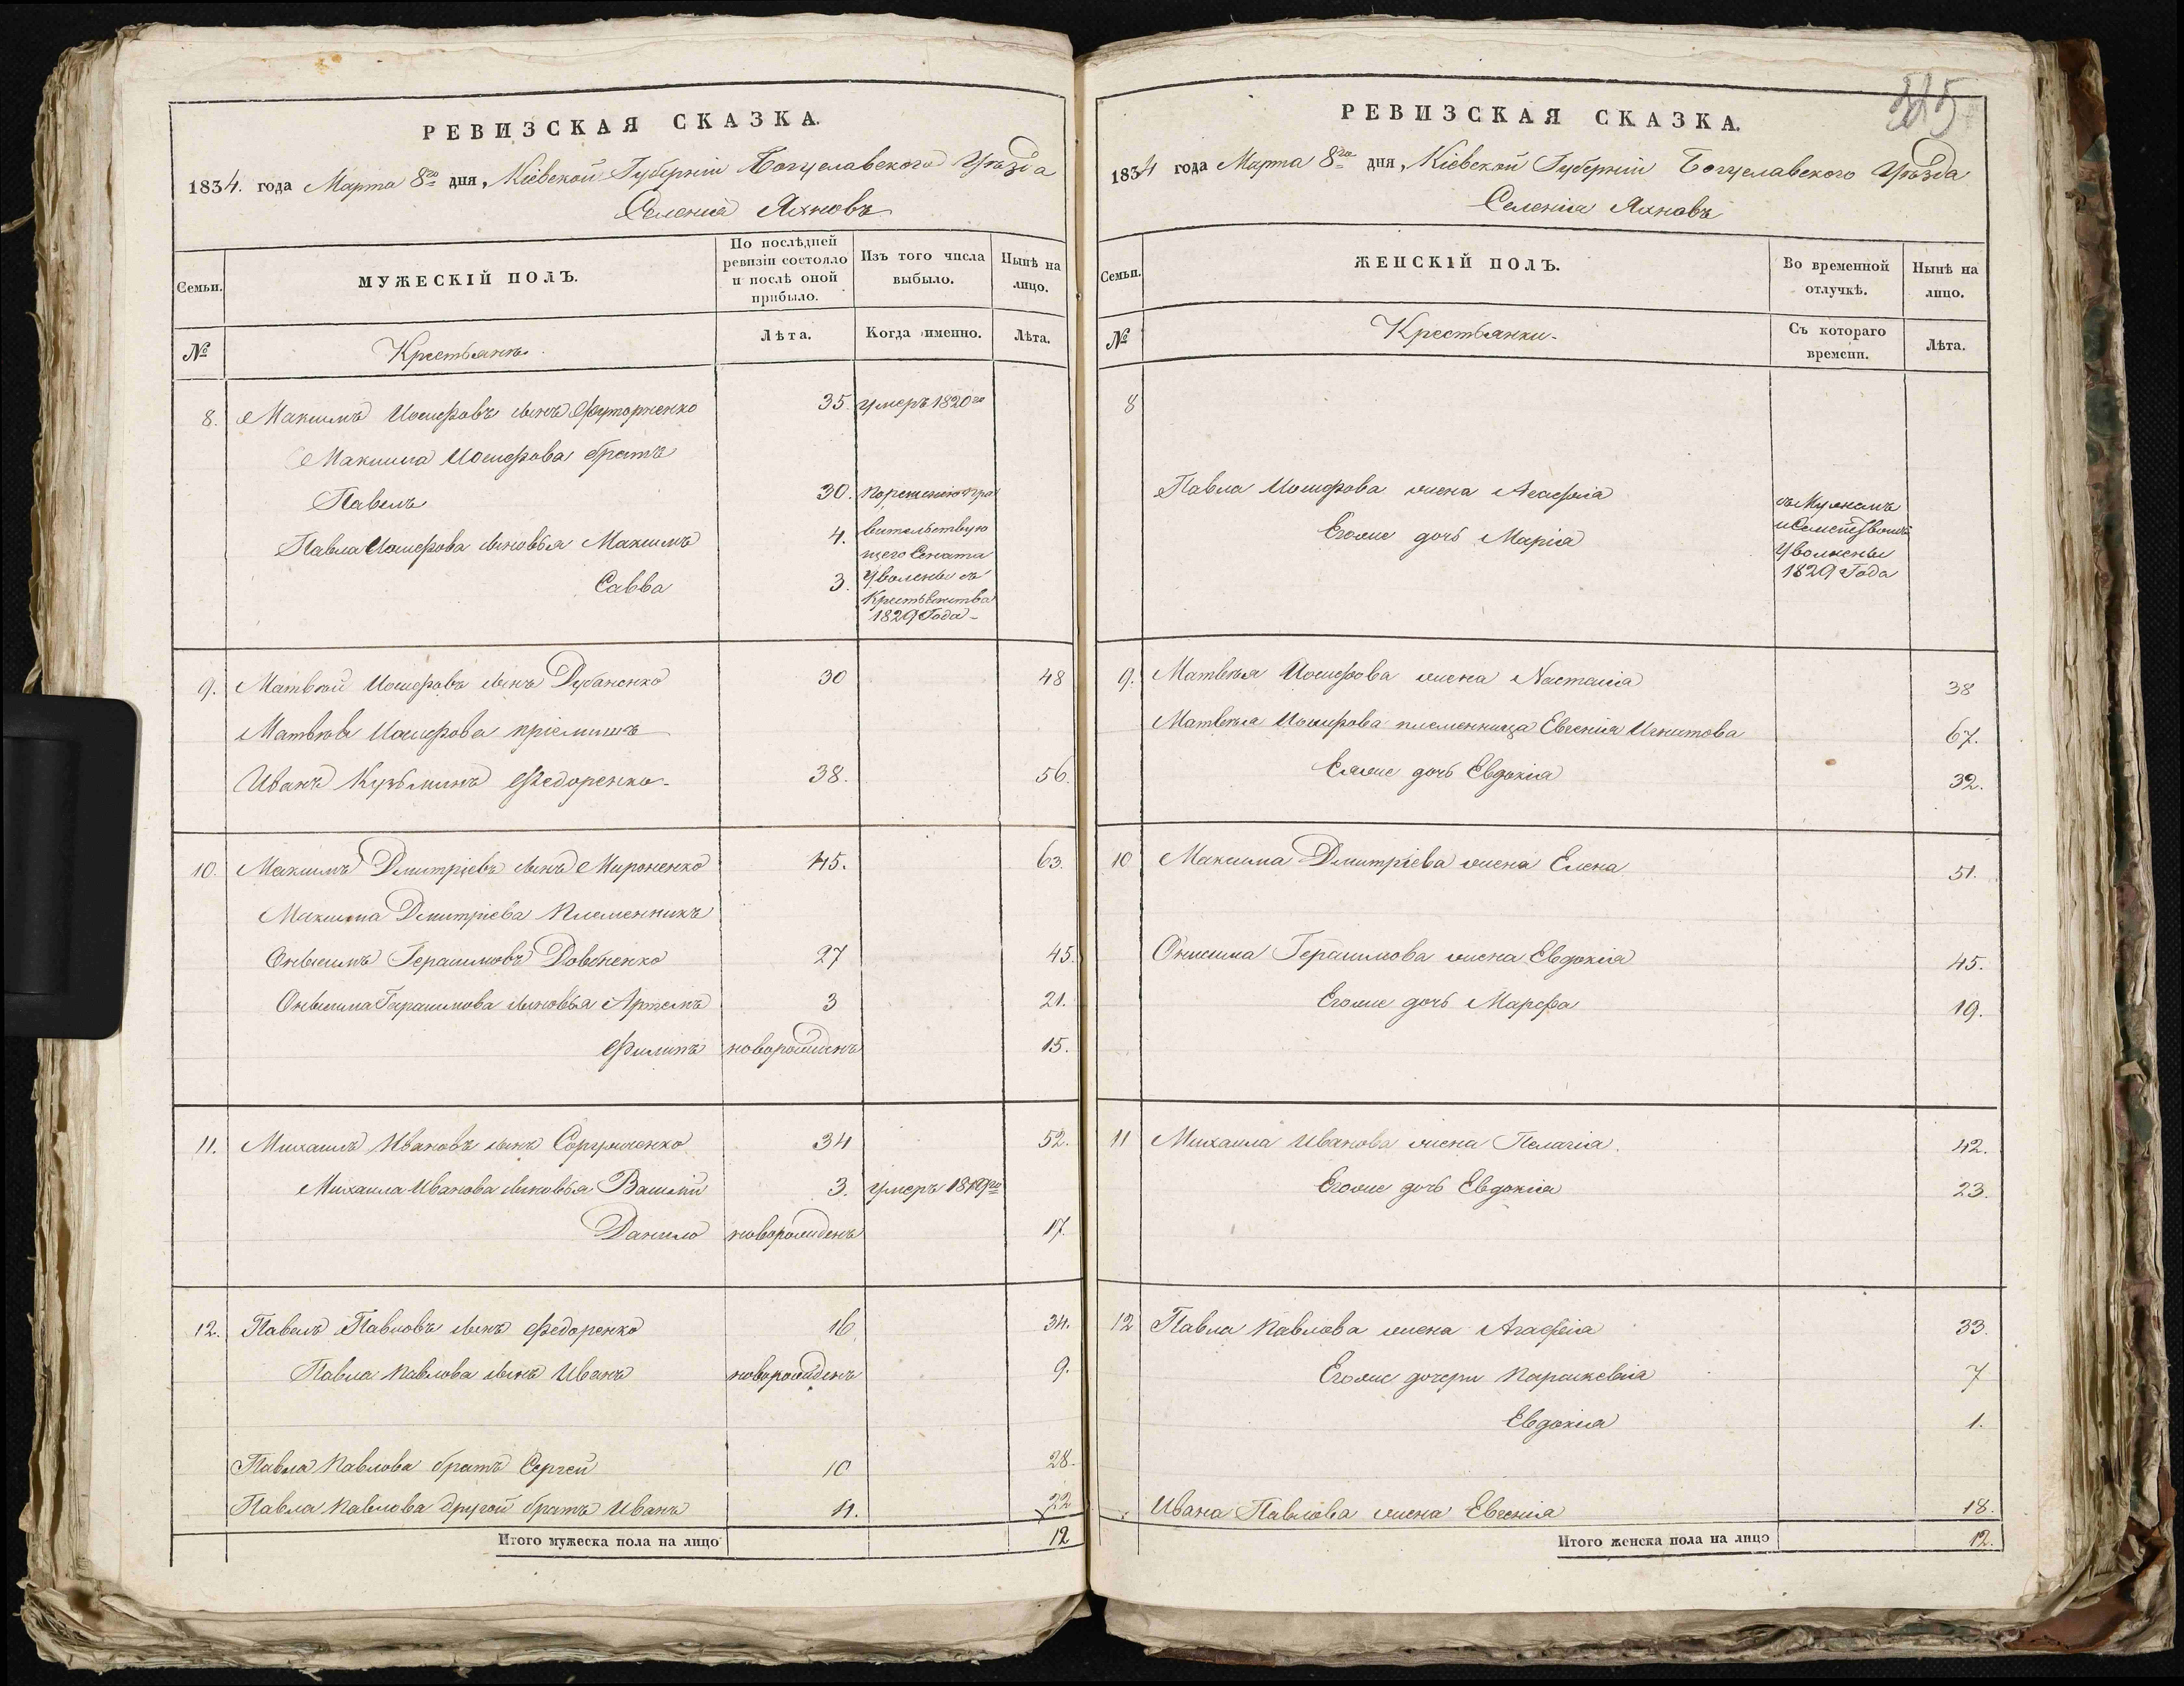 РЕВИЗСКАЯ СКАЗКА.
1834. года Марта 8го дня, Кіевской Губерніи Богуславскаго Уѣзда
Селенія Яхновъ
Семьи.
МУЖЕСКІЙ ПОЛЪ.
По послѣдней ревизіи состояло и послѣ оной прибыло.
Изъ того числа выбыло.
Нынѣ на лицо.
№
Крестьянъ.
Лѣта.
Когда именно.
Лѣта.
8. Максимъ Иосифовъ сынъ 35. умеръ 1820го
Максима Иосифова братъ
Павелъ 30. по решенію пра
Павла Иосифова сыновья Максимъ 4. вительствую
щего Сената
Савва 3. Уволены съ
Крестьянства
1829 Года
9. Матвѣй Иосифовъ сынъ Дубаненко 30 48
Матвѣя Иосифова пріемышъ
Иванъ Кузьминъ Федоренко 38. 56.
10. Максимъ Дмитріевъ сынъ Мироненко 45. 63.
Максима Дмитріева Племенникъ
Онисимъ Герасимовъ Довбненко 27 45.
Онисима Герасимова сыновья Артемъ 3 21.
Филипъ новорожденъ 15.
11. Михаилъ Ивановъ сынъ 34 52.
Михаила Иванова сыновья Василій 3. умеръ 1819го
Данило новорожденъ 17.
12. Павелъ Павловъ сынъ Федоренко 16 34.
Павла Павлова сынъ Иванъ новорожденъ 9.
Павла Павлова братъ Сергей 10 28.
Павла Павлова другой братъ Иванъ 4. 22
Итого мужеска пола на лицо 12
325
РЕВИЗСКАЯ СКАЗКА.
1834 года Марта 8го дня, Кіевской Губерніи Богуславского Уѣзда
Селенія Яхновъ
Семьи.
ЖЕНСКІЙ ПОЛЪ.
Во временной отлучкѣ.
Нынѣ на лицо.
№
Крестьянки.
Съ котораго времени.
Лѣта.
8
Павла Иосифова жена Агафія съ Мужемъ
Егоже дочь Марія и Семействомъ
Уволжены
1829 Года
9. Матвѣя Иосифова жена Настасія 38
Матвѣя Иосифова племенница Евгенія Игнатова 67.
Еяже дочь Евдокія 32.
10 Максима Дмитріева жена Елена 51.
Онисима Герасимова жена Евдокія 45.
Егоже дочь Марфа 19.
11 Михаила Иванова жена Пелагія. 42.
Егоже дочь Евдокія 23.
12 Павла Павлова жена Агафія 33.
Егоже дочери Параскевія 7
Евдокія 1.
Ивана Павлова жена Евгенія 18.
Итого женска пола на лицо 12.